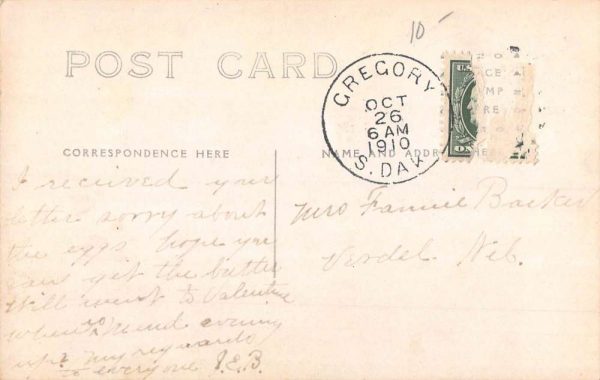 10
POST CARD
GREGORY
OCT
26
6 AM
1910
S. DAK
U.S.
CORRESPONDENCE HERE
NAME AND ADDRESS HERE
I received your
letter sorry about
the eggs hope you
can get the butter
Will went to Valentine
when
up? my regards
to everyone J.E.B.
Mrs Fannie Barker
Verdel Neb.